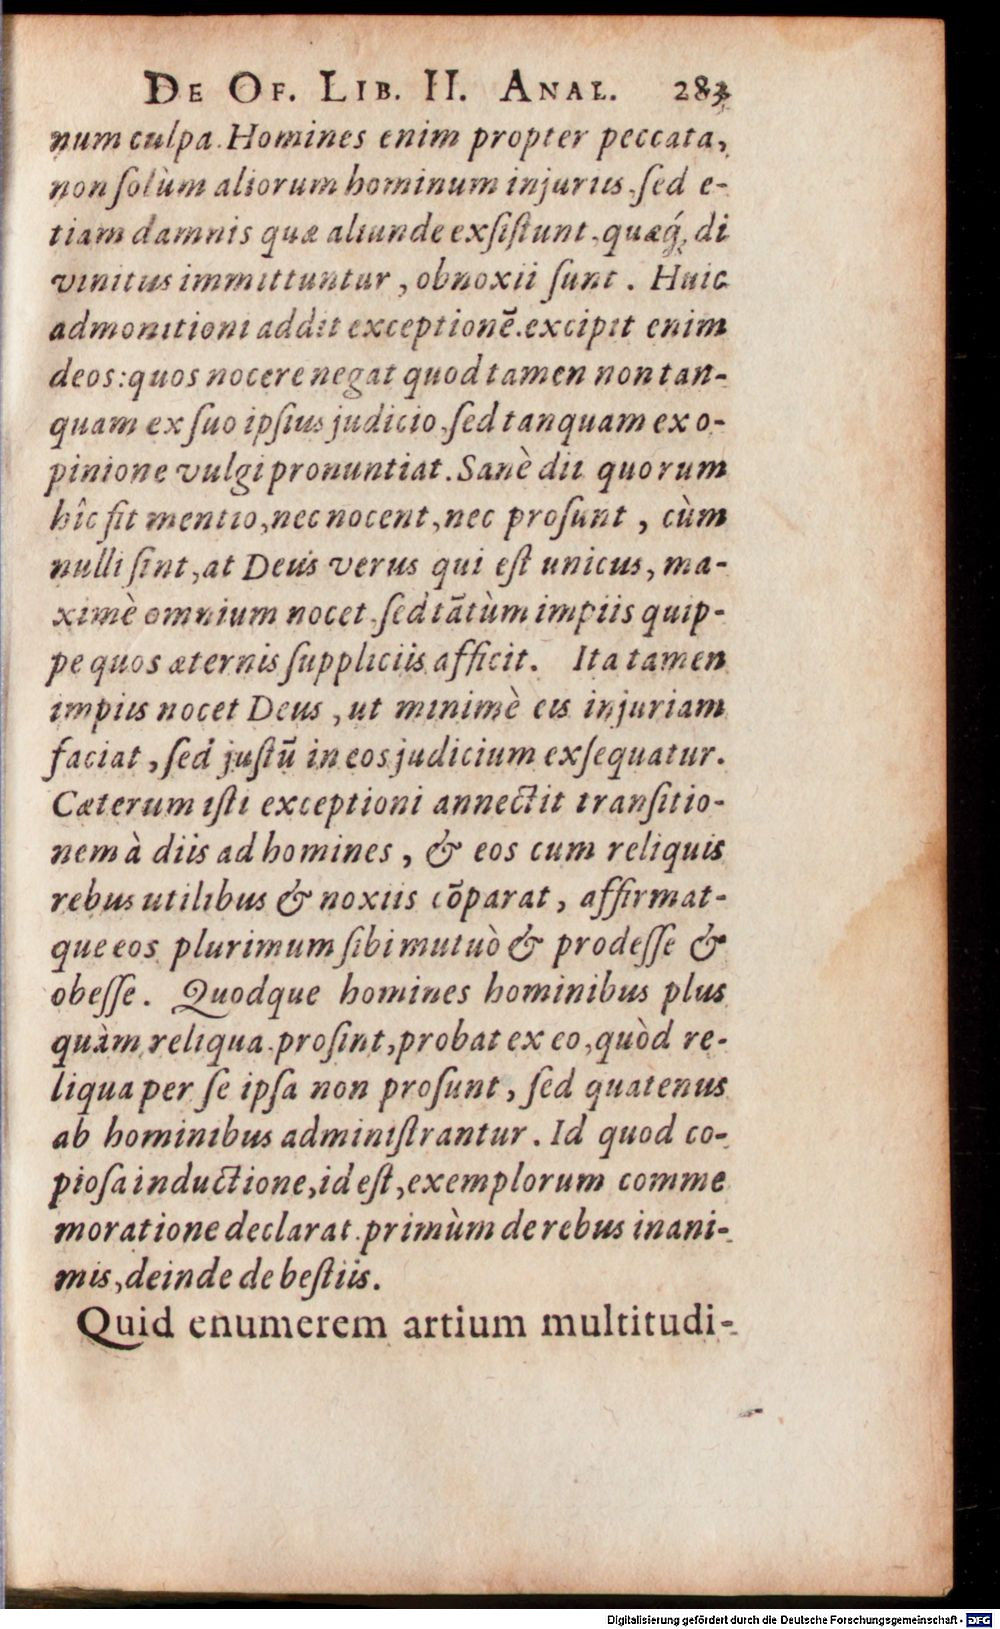 De Of. Lib. II. Anal. 283
num culpa. Homines enim propter peccata,
non ſolùm aliorum hominum injuriis, ſed e-
tiam damnis quæ aliunde exſiſtunt, quæq́; di
vinitus immittuntur, obnoxii ſunt. Huic
admonitioni addit exceptionē. excipit enim
deos: quos nocere negat quod tamen non tan-
quam ex ſuo ipſius judicio, ſed tanquam ex o-
pinione vulgi pronuntiat. Sanè dii quorum
hîc fit mentio, nec nocent, nec proſunt, cùm
nulli ſint, at Deus verus qui eſt unicus, ma-
ximè omnium nocet, ſed tātùm impiis quip-
pe quos æternis ſuppliciis afficit. Ita tamen
impiis nocet Deus, ut minimè eis injuriam
faciat, ſed juſtū in eos judicium exſequatur.
Cæterum iſti exceptioni annectit tranſitio-
nem à diis ad homines, & eos cum reliquis
rebus utilibus & noxiis cōparat, affirmat-
que eos plurimum ſibi mutuò & prodeſſe &
obeſſe. Quodque homines hominibus plus
quàm reliqua proſint, probat ex eo, quòd re-
liqua per ſe ipſa non proſunt, ſed quatenus
ab hominibus adminiſtrantur. Id quod co-
pioſa inductione, id eſt, exemplorum comme
moratione declarat. primùm de rebus inani-
mis, deinde de beſtiis.
Quid enumerem artium multitudi-
Digitalisierung gefördert durch die Deutsche Forschungsgemeinschaft - DFG